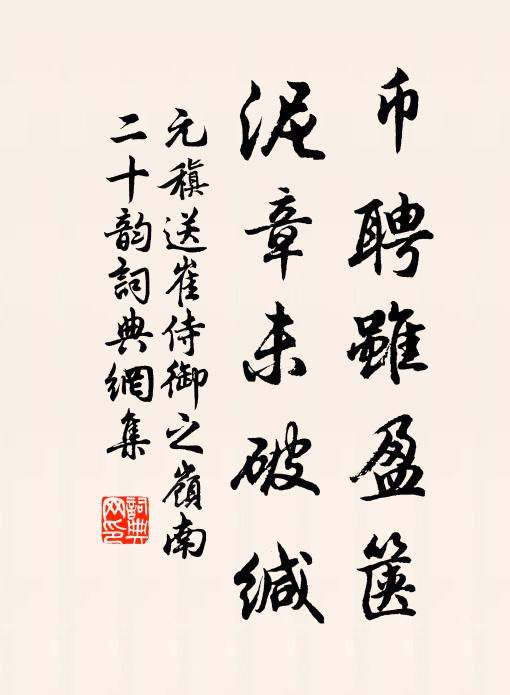 币聘雖盈篋
泥章未破缄
元稹送崔侍御之嶺南
二十韵詞典網集
詞典
网印